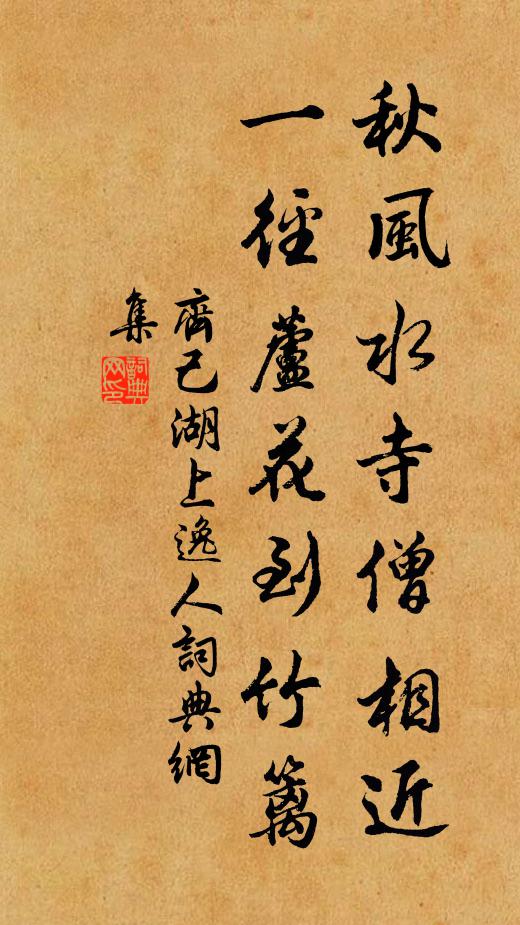 秋風水寺僧相近
一徑蘆花到竹籬
齊己湖上逸人詞典網
集
詞典
网印